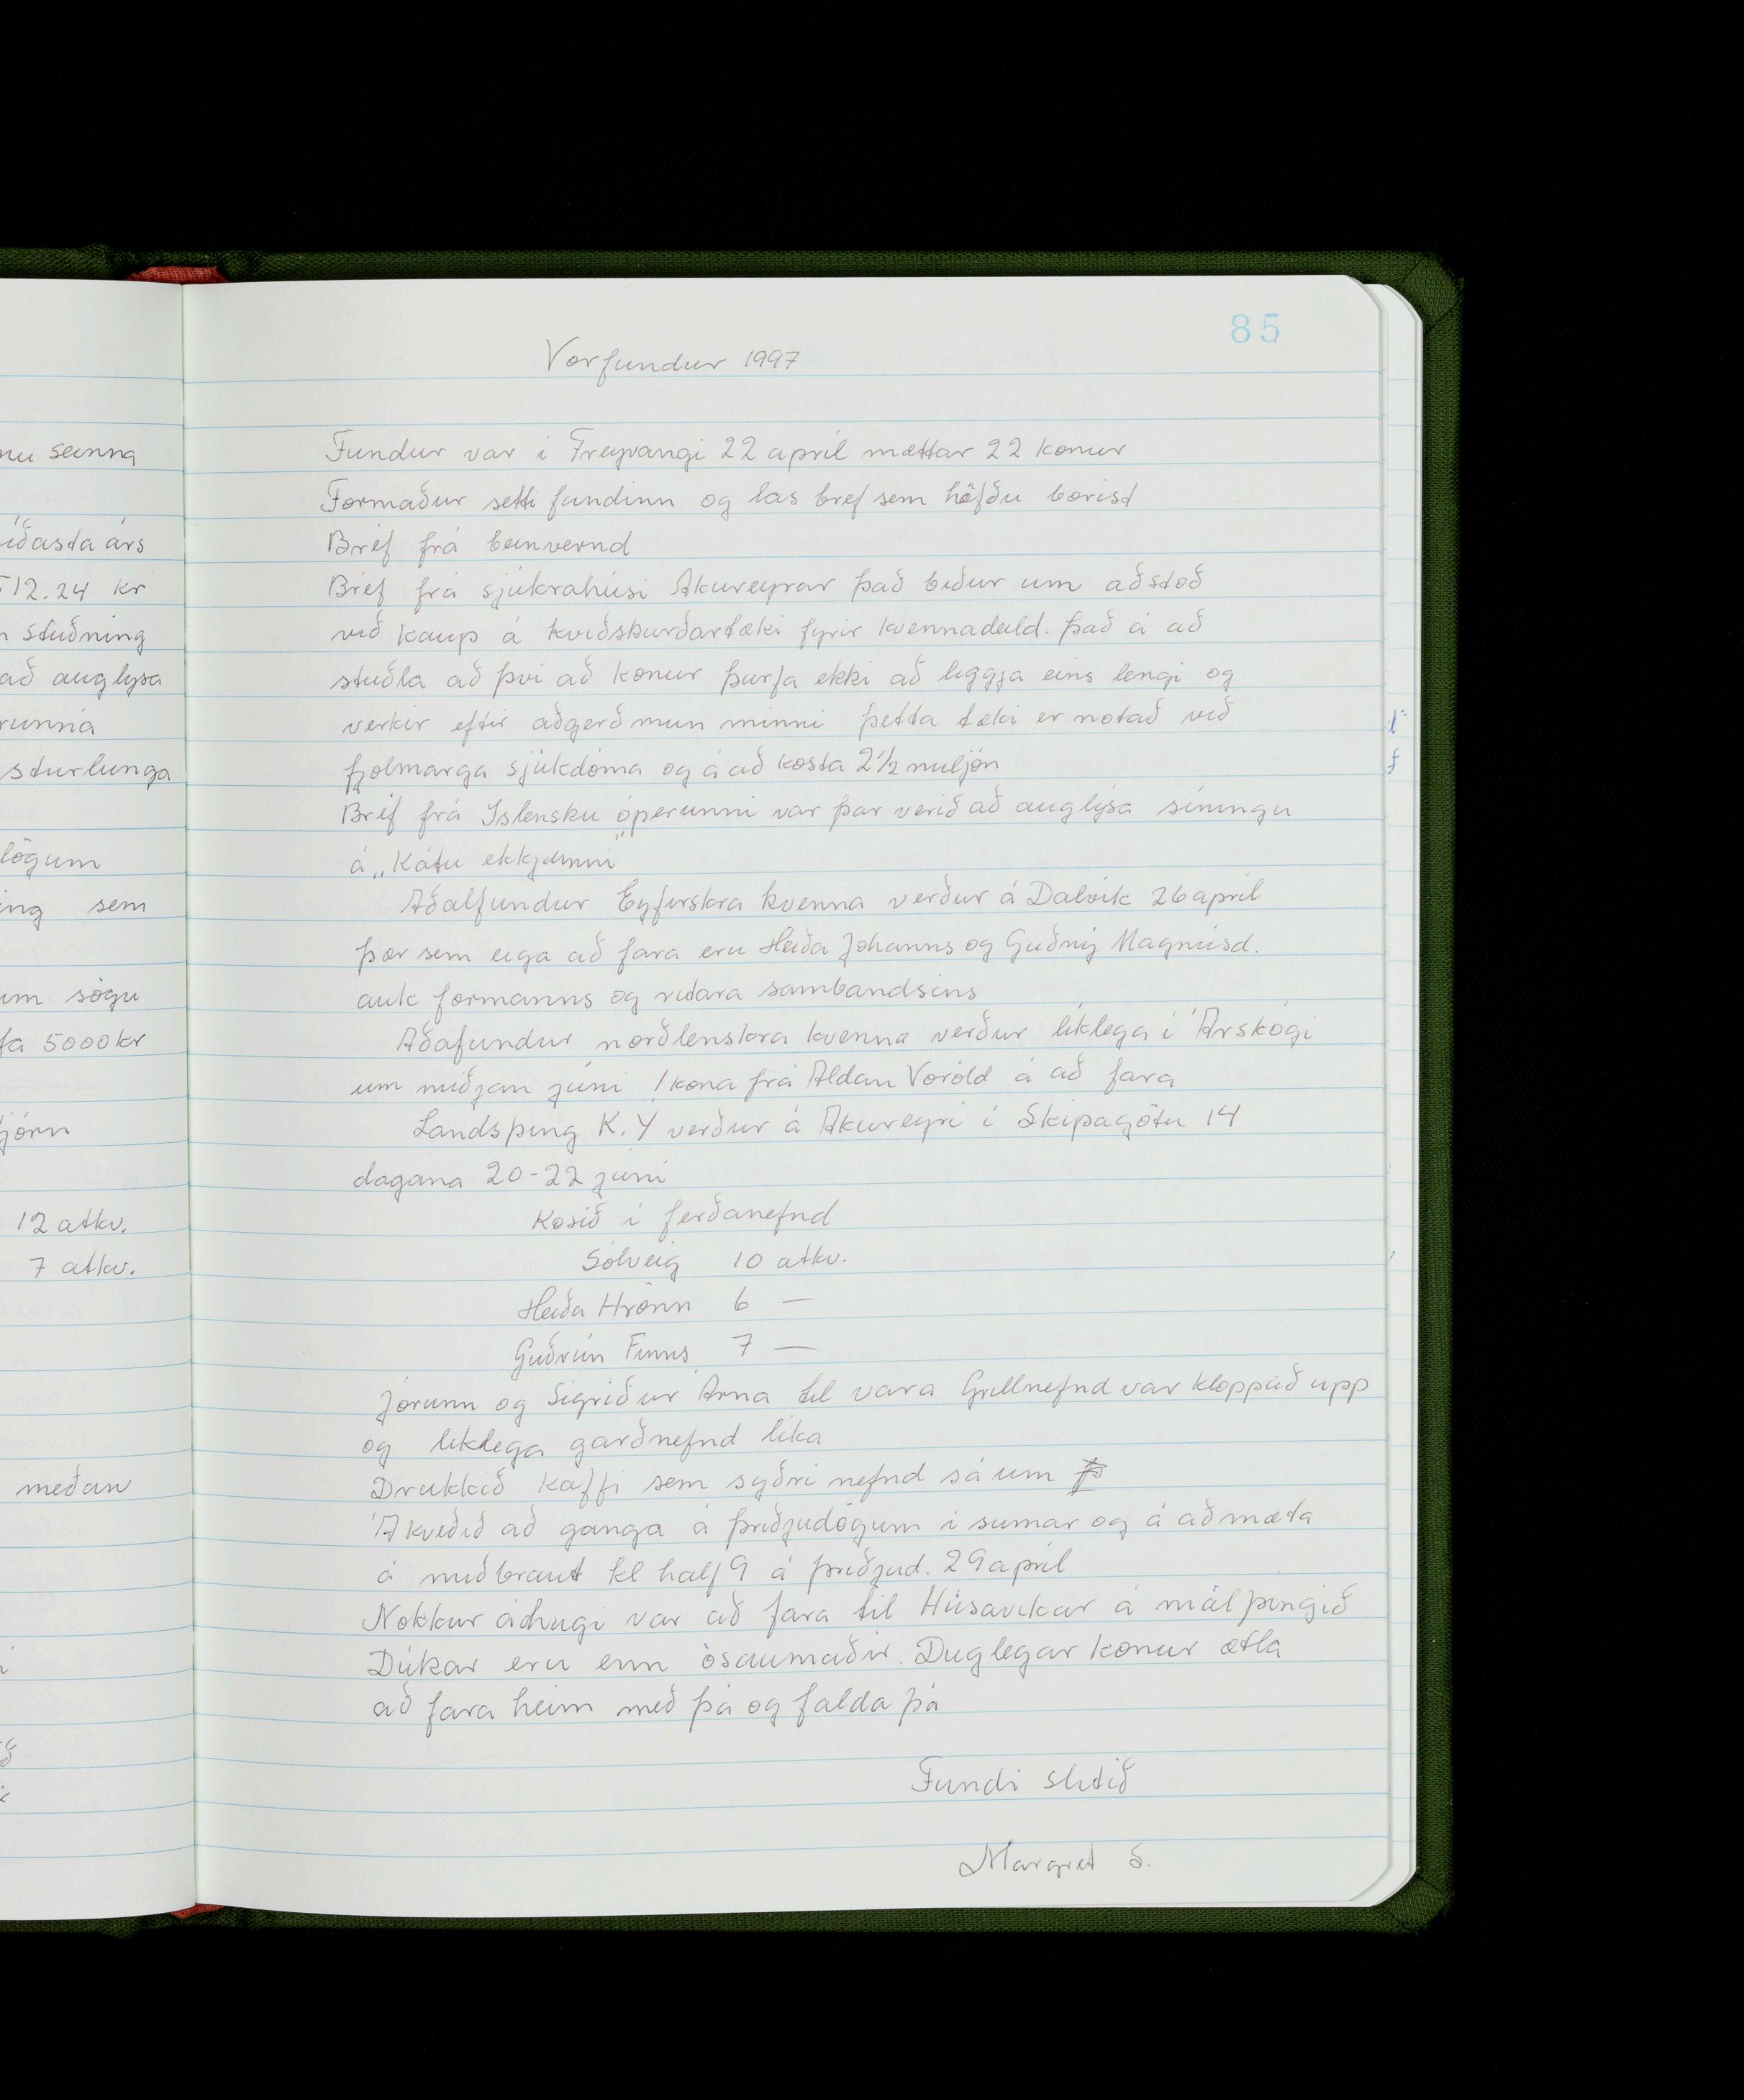 nu seinna
íðasta árs
512.24 kr
stuðning
að auglýsa
runnia
sturlunga
lögum
ing sem
um sögu
fa 5000 kr
jórn
12 atkv.
7 atkv.
meðan
85
Vorfundur 1997
Fundur var i Freyvangi 22 april mættar 22 konur
Formaður setti fundinn og las bref sem höfðu borist
Bréf frá beinvernd
Bréf frá sjúkrahúsi Akureyrar það biður um aðstoð
við kaup á kviðskurðartæki fyrir kvennadeild. það á að
stuðla að því að konur þurfa ekki að liggja eins lengi og
verkir eftir aðgerð mun minni þetta tæki er notað við
fjolmarga sjúkdóma og á að kosta 2 1/2 miljón
Bréf frá Islensku óperunni var þar verið að auglýsa síningu
á „Kátu ekkjunni"
Aðalfundur Eyfirskra kvenna verður á Dalvik 26 april
þær sem eiga að fara eru Heiða Jóhanns og Guðný Magnúsd.
auk formanns og ritara sambandsins
Aðafundur norðlenskra kvenna verður líklega í Árskógi
um miðjan júní 1 kona frá Aldan Voröld á að fara
Landsþing K.Y verður á Akureyri í Skipagötu 14
dagana 20-22 júní
Kosið í ferðanefnd
Sólveig 10 atkv.
Heiða Hrönn 6 —
Guðrún Finns 7 —
Jórunn og Sigríður Árna til vara Grillnefnd var kloppuð upp
og liklega garðnefnd lika
Drukkið kaffi sem syðri nefnd sá um
Ákveðið að ganga á þriðjudögum i sumar og á að mæta
á miðbraut kl half 9 á þriðjud. 29 april
Nokkur áhugi var að fara til Húsavikur á málþingið
Dúkar eru enn ósaumaðir. Duglegar konur ætla
að fara heim með þá og falda þá
Fundi slitið
Margret S.